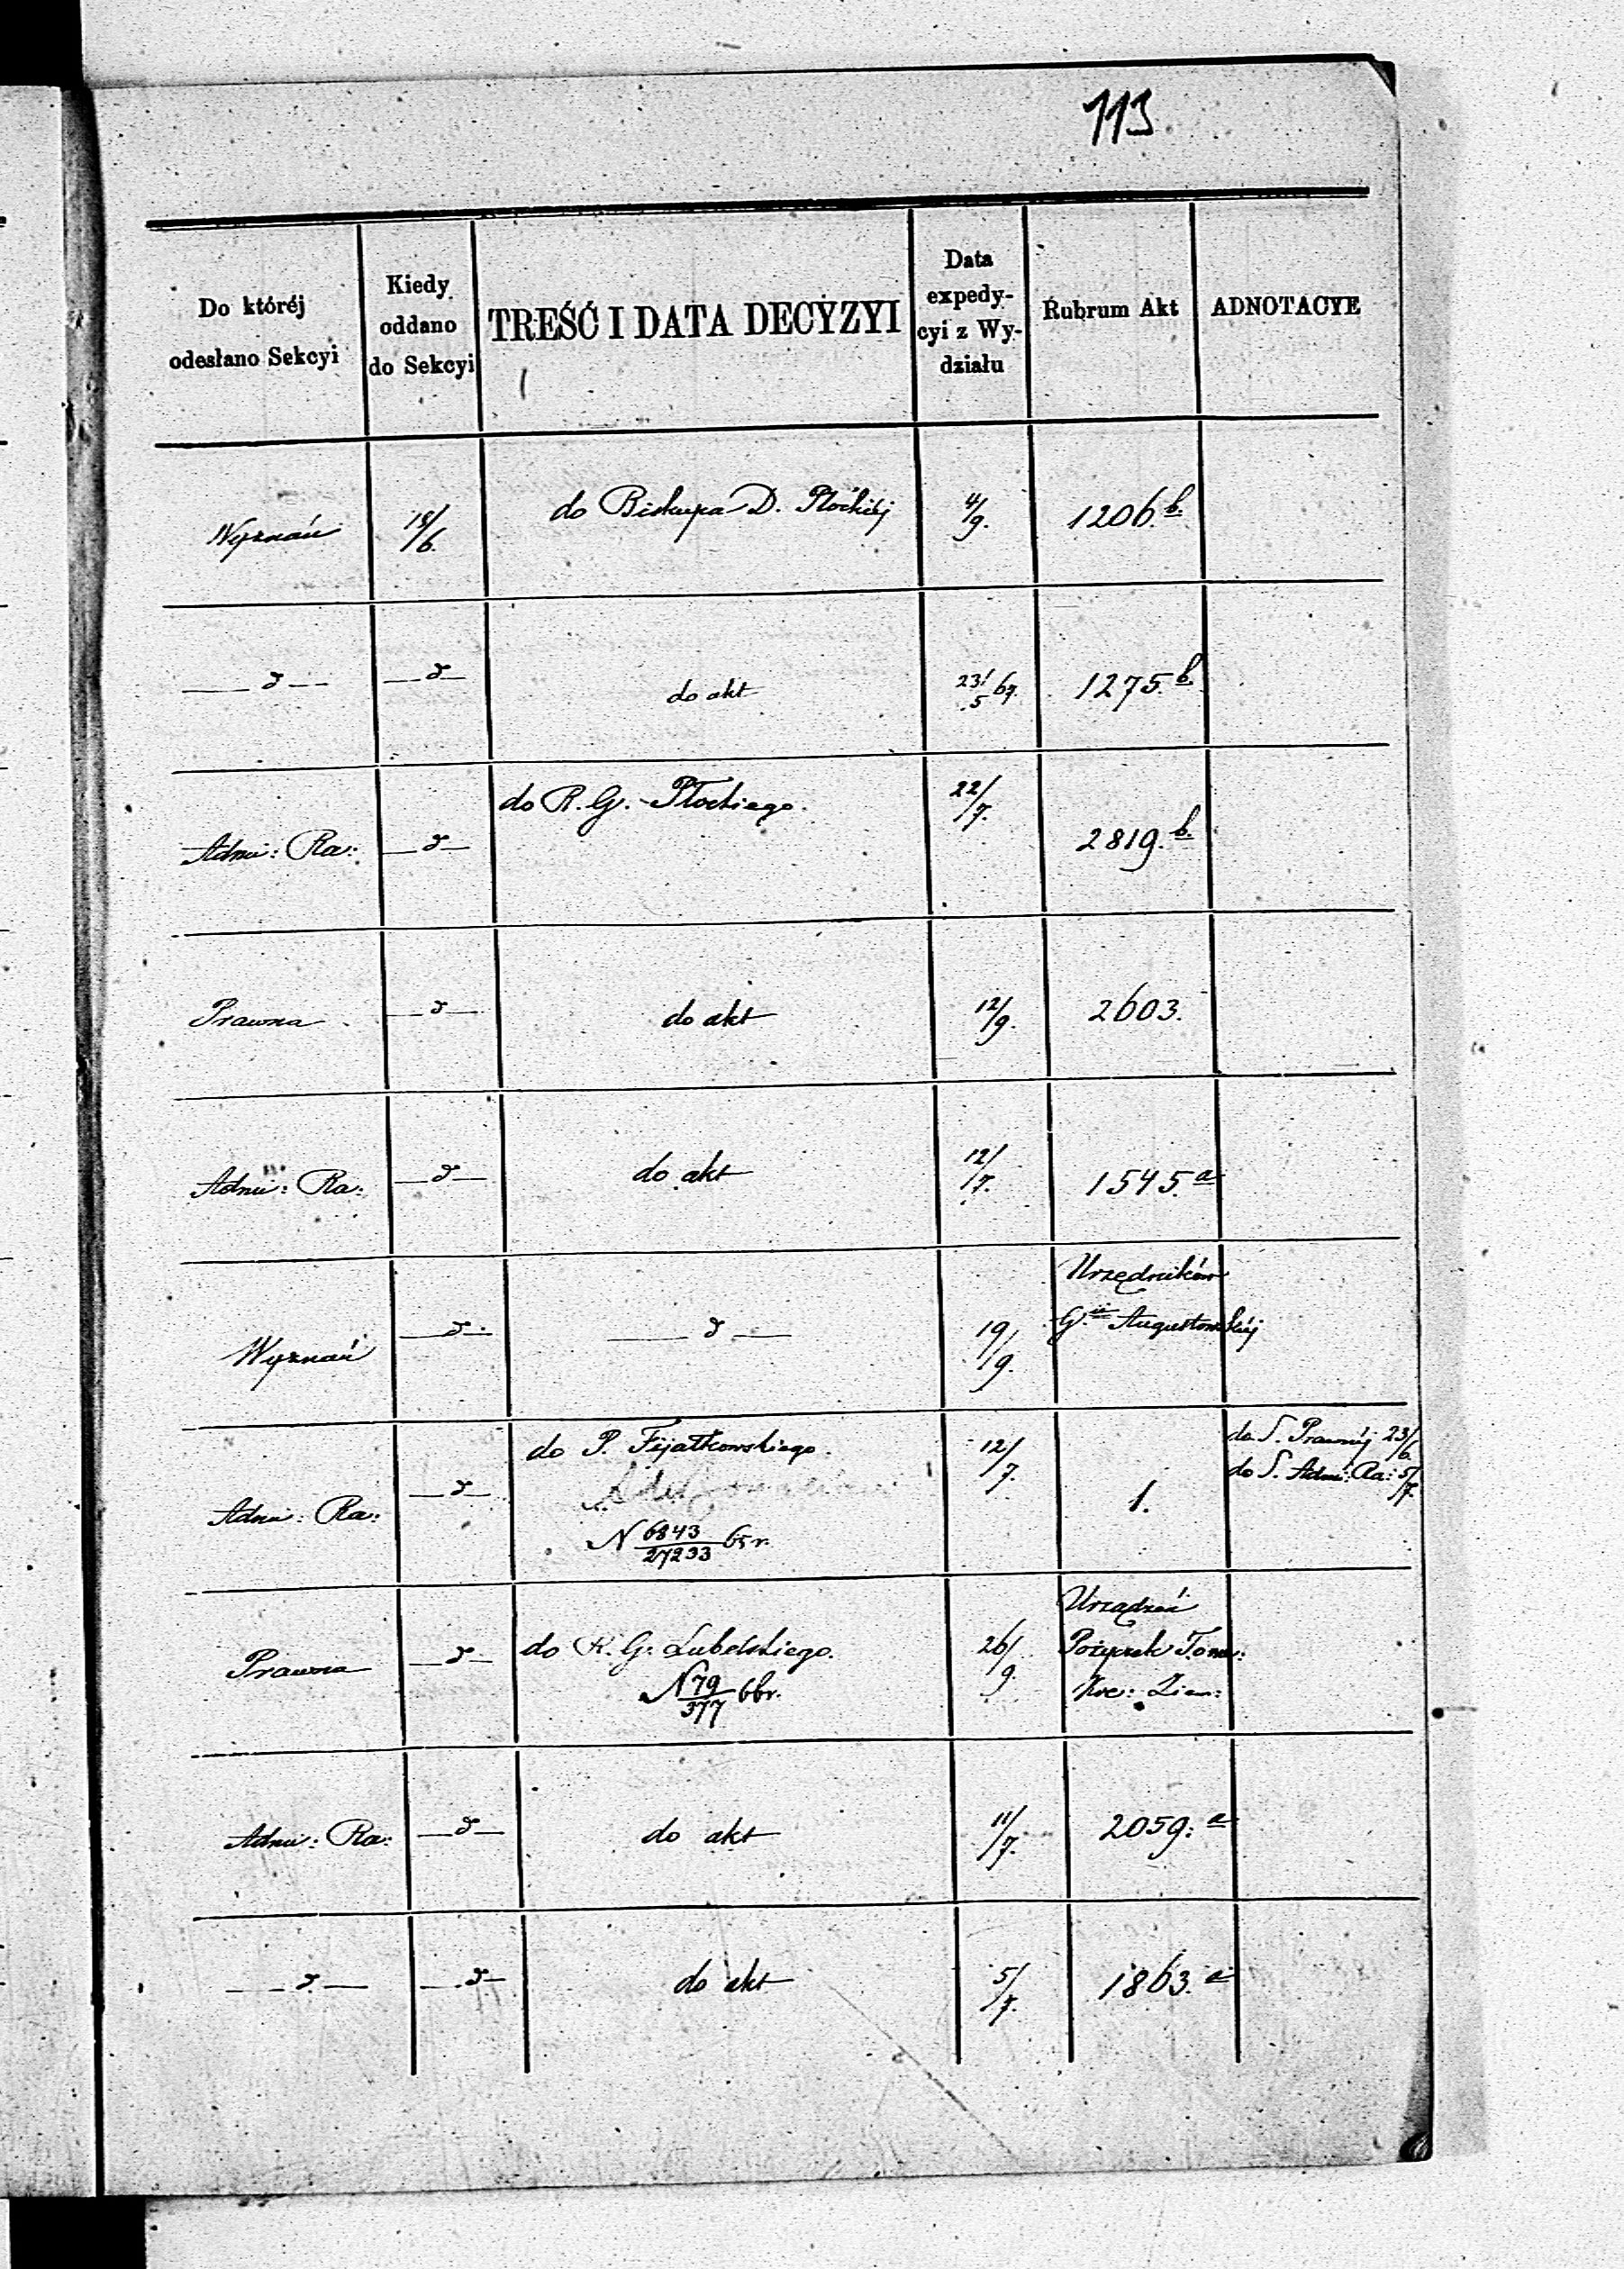 113
Do któréj
odesłano Sekcyi
Kiedy
oddano
do Sekcyi
TREŚĆ I DATA DECYZYI
Data
expedy-
cyi z Wy-
działu
Rubrum Akt
ADNOTACYE
Wyznań 18/6. do Biskupa D. Płockiéj 4/9. 1206.b.
— d — — d — do akt 23/5 67. 1275.b.
do R. G. Płockiego. 22/7.
Adm: Ra: — d — 2819.b.
Prawna — d — do akt 12/9. 2603.
Adm: Ra: — d — do akt 12/7. 1545.a
Wyznań — d — — d — 19/9. Urzędników
G.ii Augustowskiéj
do P. Fijałkowskiego. 12/7. do S. Prawnéj 23/6.
do S. Adm: Ra: 5/7.
Adm: Ra: — d — 1.
N 6843/27233 65 r.
Prawna — d — do R. G. Lubelskiego. 26/9. Urządzeń
Pożyczek Tow:
N 79/377 66 r. Kre: Ziem:
Adm: Ra: — d — do akt 11/7. 2059.a
— d — — d — do akt 5/7. 1863.a